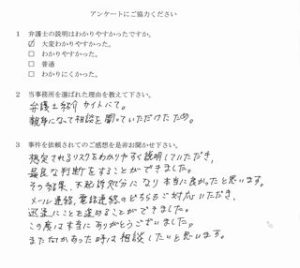 アンケートにご協力ください
1 弁護士の説明はわかりやすかったですか。
☑ 大変わかりやすかった。
□ わかりやすかった。
□ 普通
□ わかりにくかった。
2 当事務所を選ばれた理由を教えて下さい。
弁護士紹介サイトにて。
親身になって相談を聞いていただけたため。
3 事件を依頼されてのご感想を是非お聞かせ下さい。
想定されるリスクをわかりやすく説明していただき、
最良な判断をすることができました。
その結果、不起訴処分になり本当に良かったと思います。
メール連絡、電話連絡のどちらもご対応いただき、
迅速にことを進めることができました。
この度は本当にありがとうございました。
またなにかあった時は相談したいと思います。